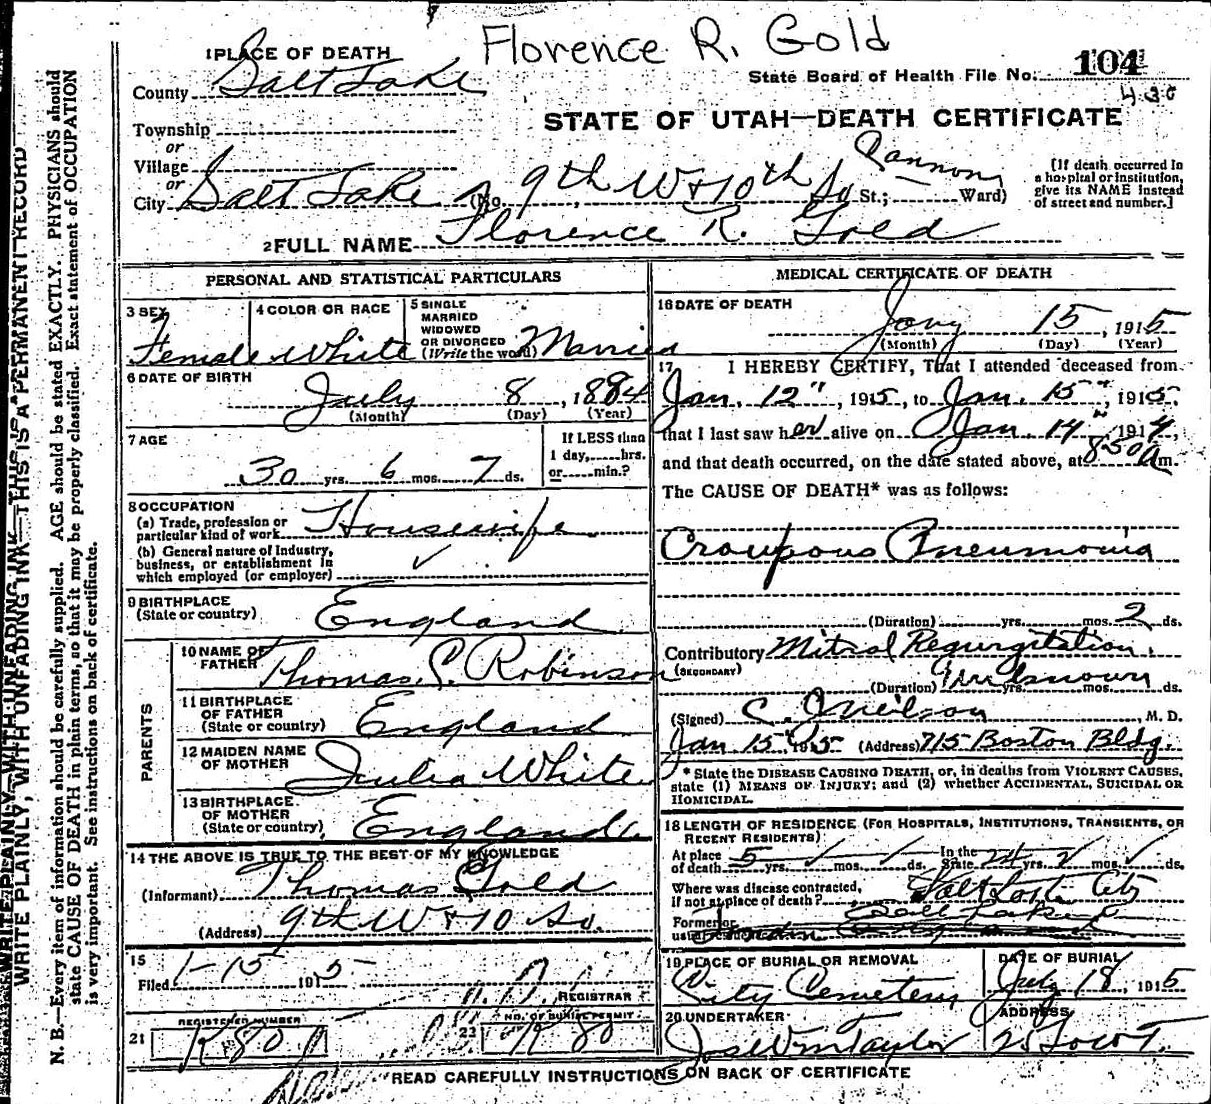 Florence R. Gold
1 PLACE OF DEATH
State Board of Health File No. 104
County Salt Lake
430
STATE OF UTAH—DEATH CERTIFICATE
Township
or
Village
or
City Salt Lake (No. 9th W & 10th So St.; Cannon Ward)
[If death occurred in
a hospital or institution,
give its NAME instead
of street and number.]
2 FULL NAME Florence R. Gold
PERSONAL AND STATISTICAL PARTICULARS
3 SEX
Female
4 COLOR OR RACE
White
5 SINGLE
MARRIED
WIDOWED
OR DIVORCED
(Write the word) Married
6 DATE OF BIRTH
July 8, 1884
(Month) (Day) (Year)
7 AGE
If LESS than
1 day,......hrs.
or......min.?
30 yrs. 6 mos. 7 ds.
8 OCCUPATION
(a) Trade, profession or
particular kind of work Housewife
(b) General nature of Industry,
business, or establishment in
which employed (or employer) ✓
9 BIRTHPLACE
(State or country) England
PARENTS
10 NAME OF
FATHER Thomas S. Robinson
11 BIRTHPLACE
OF FATHER
(State or country) England
12 MAIDEN NAME
OF MOTHER Julia White
13 BIRTHPLACE
OF MOTHER
(State or country) England
14 THE ABOVE IS TRUE TO THE BEST OF MY KNOWLEDGE
(Informant) Thomas Gold
(Address) 9th W & 10 So.
15
Filed 1-15 1915
REGISTRAR
21 REGISTERED NUMBER
K 80
22 NO. OF BURIAL PERMIT
K 80
MEDICAL CERTIFICATE OF DEATH
16 DATE OF DEATH
Jany 15, 1915
(Month) (Day) (Year)
17 I HEREBY CERTIFY, That I attended deceased from
Jan. 12", 1915, to Jan. 15", 1915,
that I last saw her alive on Jan. 14", 1914,
and that death occurred, on the date stated above, at 8:50 A m.
The CAUSE OF DEATH* was as follows:
Croupous Pneumonia
(Duration) yrs. mos. 2 ds.
Contributory Mitral Regurgitation.
(SECONDARY)
(Duration) Unknown yrs. mos. ds.
(Signed) C. Neilson, M. D.
Jan 15 1915 (Address) 715 Boston Bldg.
* State the DISEASE CAUSING DEATH, or, in deaths from VIOLENT CAUSES,
state (1) MEANS OF INJURY; and (2) whether ACCIDENTAL, SUICIDAL OR
HOMICIDAL.
18 LENGTH OF RESIDENCE (FOR HOSPITALS, INSTITUTIONS, TRANSIENTS, OR
RECENT RESIDENTS)
At place
of death 5 yrs. ✓ mos. ✓ ds. In the State yrs. 2 mos. ✓ ds.
Where was disease contracted,
If not at place of death? Salt Lake City
Former or
usual residence
19 PLACE OF BURIAL OR REMOVAL
City Cemetery
DATE OF BURIAL
July 18, 1915
20 UNDERTAKER
Jos Wm Taylor
ADDRESS
READ CAREFULLY INSTRUCTIONS ON BACK OF CERTIFICATE
WRITE PLAINLY, WITH UNFADING INK—THIS IS A PERMANENT RECORD
N. B.—Every item of information should be carefully supplied. AGE should be stated EXACTLY. PHYSICIANS should
state CAUSE OF DEATH in plain terms, so that it may be properly classified. Exact statement of OCCUPATION
is very important. See instructions on back of certificate.